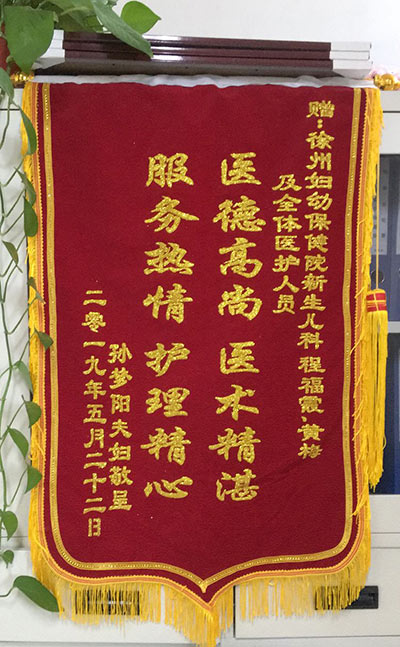 赠:徐州妇幼保健院新生儿科 程福霞、黄梅
及全体医护人员
医德高尚 医术精湛
服务热情 护理精心
孙梦阳夫妇敬呈
二零一九年五月二十二日